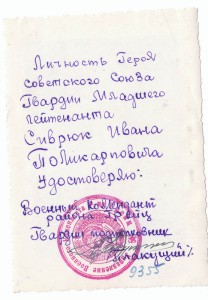 Личность Героя
Советского Союза
Гвардии Младшего
лейтенанта
Сиврюк Ивана
Поликарповича
Удостоверяю:
Военный комендант
района
Гвардии подполковник
9355